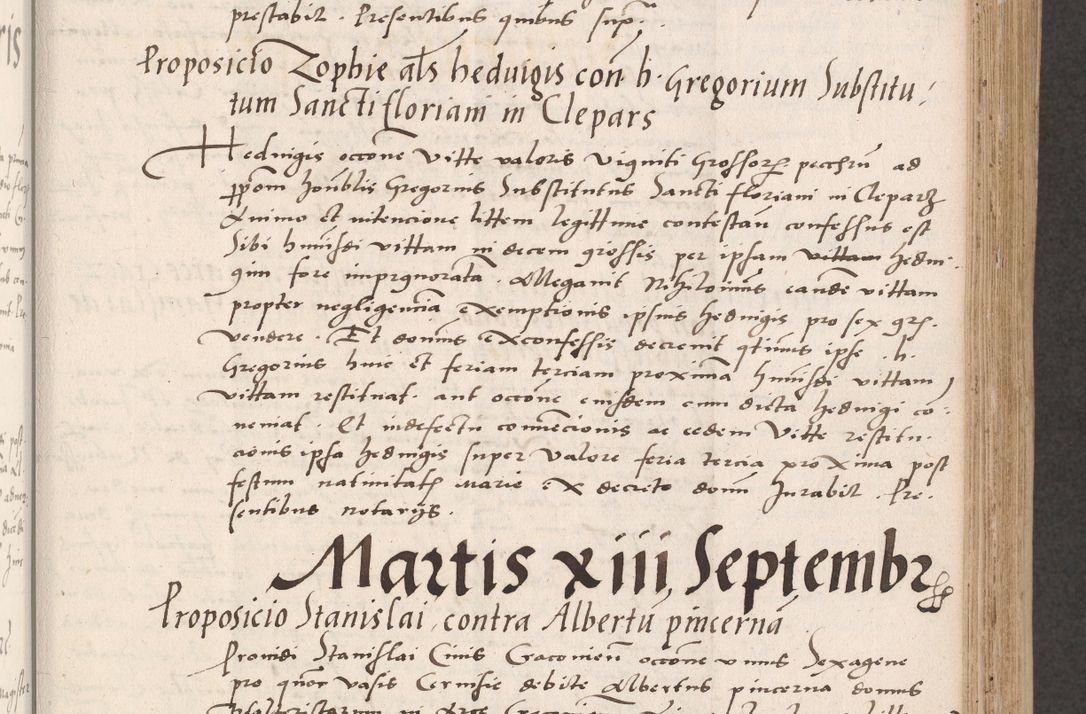 prestabit. Presentibus quibus sup.ᵃ
Proposicio Zophie als heduigis con h. Gregorium Substitu,
tum Sancti floriani in Clepars
Heduigis occone vitte valoris viginti Grossorꝝ pecchrū ad
ꝓpom honblis Gregorius Substitutus Sancti floriani in Cleparꝫ
Animo et intencione littem legittime contestan confessus est
Sibi hmōi vittam in decem grossis per ipsam vittam hedui.
gim fore impignorata. Allegauit Nihilominus eande vittam
propter negligencia exempcionis ipsius heduigis pro sex grs.
vendere. Et dominus ex confessis decreuit qtinus ipse .h.
Gregorius huic et feriam terciam proxima hmōi vittam
vittam restituat. aut occone eiusdem cum dicta heduigi co-
neniat. Et in defectu conuencionis ac eedem vitte restitu.
cionis ipsa heduigis super valore feria tercia proxima post
festum natiuitatꝭ Marie ex decreto domi Jurabit. Pre.
sentibus notarijs.
Martis xiii, Septembr
Proposicio Stanislai, contra Albertū pincernā
Prouidi Stanislai Ciuis Cracouien occone vnius Sexagene
pro quor vasis Ceruisie debite Albertus pincerna domus